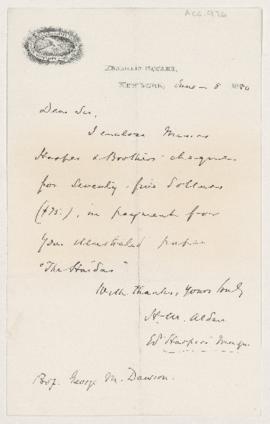 Acc. 926
FRANKLIN SQUARE,
NEW YORK, June 8 1882
Dear Sir,
I enclose Messrs
Harper & Brothers' cheque
for Seventy five Dollars
($75.), in payment for
your illustrated paper
"The Haidas"
With thanks, yours truly
H. M. Alden
Ed Harper's Mag.
Prof. George M. Dawson.